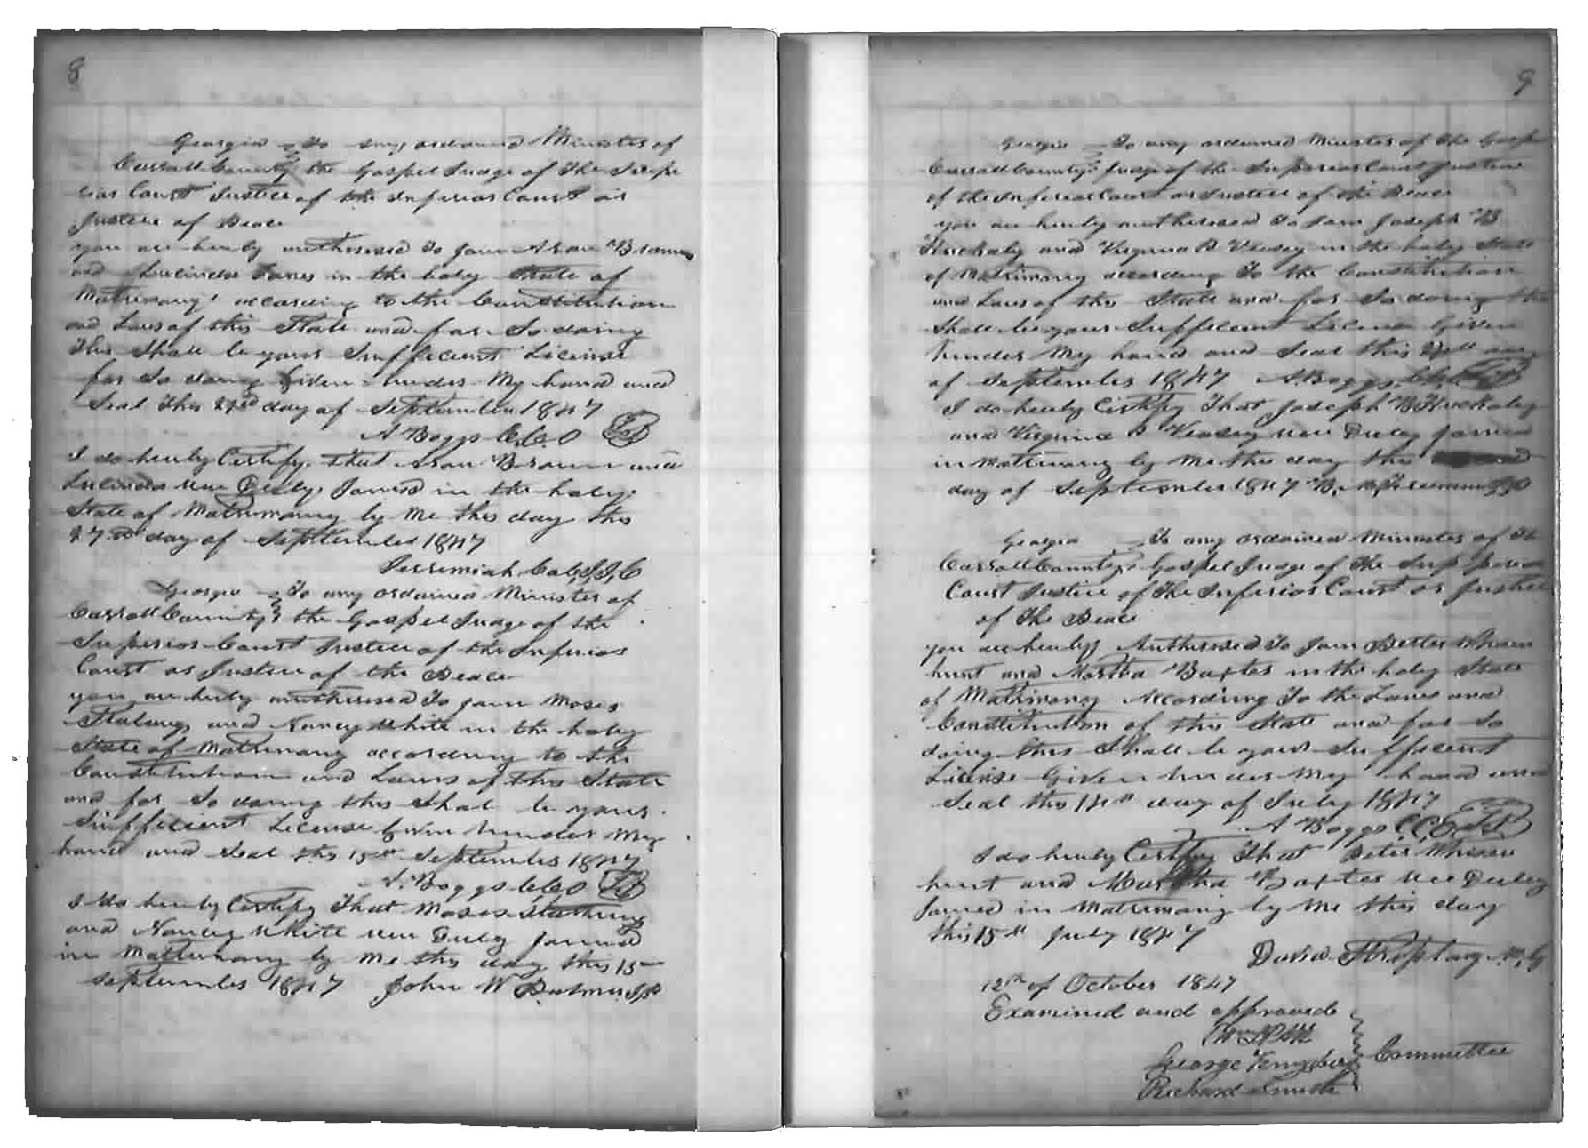 8
Georgia To any ordained Minister of
Carroll County the Gospel Judge of The Supe
rior Court Justice of the Inferior Court or
Justice of Peace
you are hereby authorised to join Aron Brown
and Lucinda in the holy State of
Matrimony according to the Constitution
and Laws of this State and for So doing
This Shall be your Sufficient License
for So doing Given under My hand and
Seal This day of September 1847
A Boggs CCO LS
I do hereby Certify That Aron Brown and
Lucinda were Duly Joined in the holy
State of Matrimony by Me this day this
27 day of September 1847
Jerremiah Cole J.I.C
Georgia To any ordained Minister of
Carroll County the Gospel Judge of the
Superior Court Justice of the Inferior
Court or Justice of the Peace
you are hereby authorised To join Moses
and Nancy White in the holy
State of Matrimony according to the
Constitution and Laws of this State
and for So doing this Shal be your
Sufficient License Given Under My
hand and Seal this 15th September 1847
A. Boggs CCO LS
I do hereby Certify That Moses
and Nancy White were Duly Joined
in Matrimony by Me this day this 15
September 1847 John W
9
Georgia To any ordained Minister of The Gospe
Carroll County Judge of the Superior Court Justice
of the Inferior Court or Justice of the Peace
you are hereby authorised To Join Joseph B
Huckaby and Virginia Veasey in the holy State
of Matrimony according To the Constitution
and Laws of this State and for So doing this
Shall be your Sufficient License Given
Under My hand and Seal this day
of September 1847 A. Boggs LS
I do hereby Certify That Joseph B Huckaby
and Virginia Veasey were Duly Joined
in Matrimony by Me this day this
day of September 1847 B.
Georgia To any ordained Minister of The
Carroll County Gospel Judge of The Supperior
Court Justice of The Inferior Court or Justice
of The Peace
you are hereby Authorised To Join Petter Whisen
hunt and Martha Baxter in the holy State
of Matrimony According To the Laws and
Constitution of this State and for So
doing this Shall be your Sufficient
License Given Under My hand and
Seal this 14th day of July 1847
A Boggs C.C.O LS
I do hereby Certify That Peter Whisen
hunt and Martha Baxter were Duley
Joined in Matrimony by Me this day
this 15th July 1847
David Striplang M.G
12th of October 1847
Examined and approved
George
Committee
Richard Smith